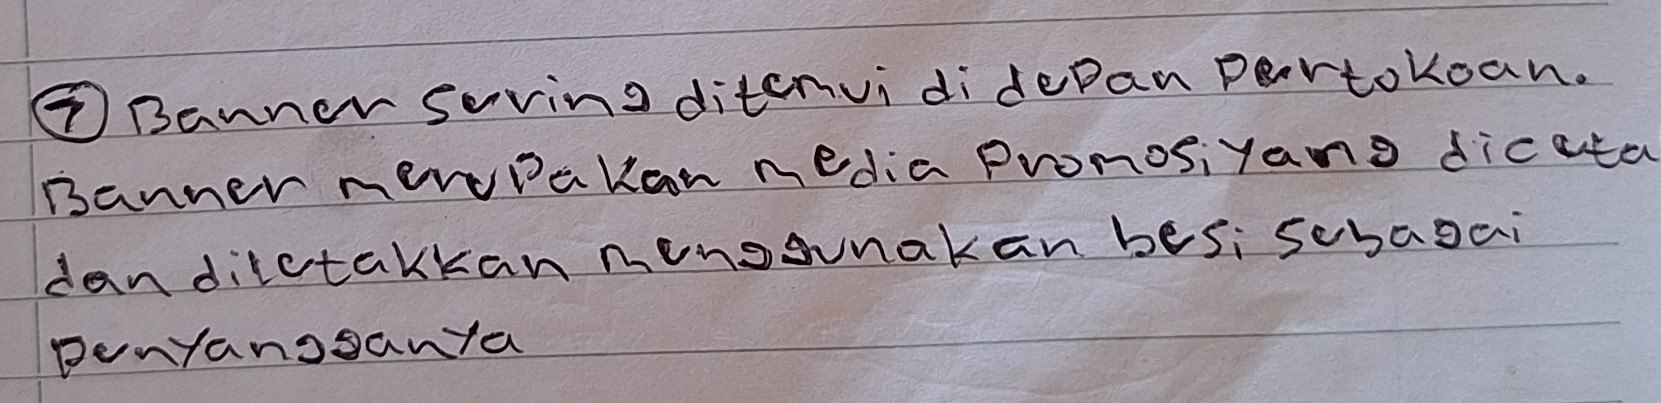 ⑦ Banner sering ditemui di depan pertokoan.
Banner merupakan media promosi yang diceta
dan diletakkan menggunakan besi sebagai
penyangganya